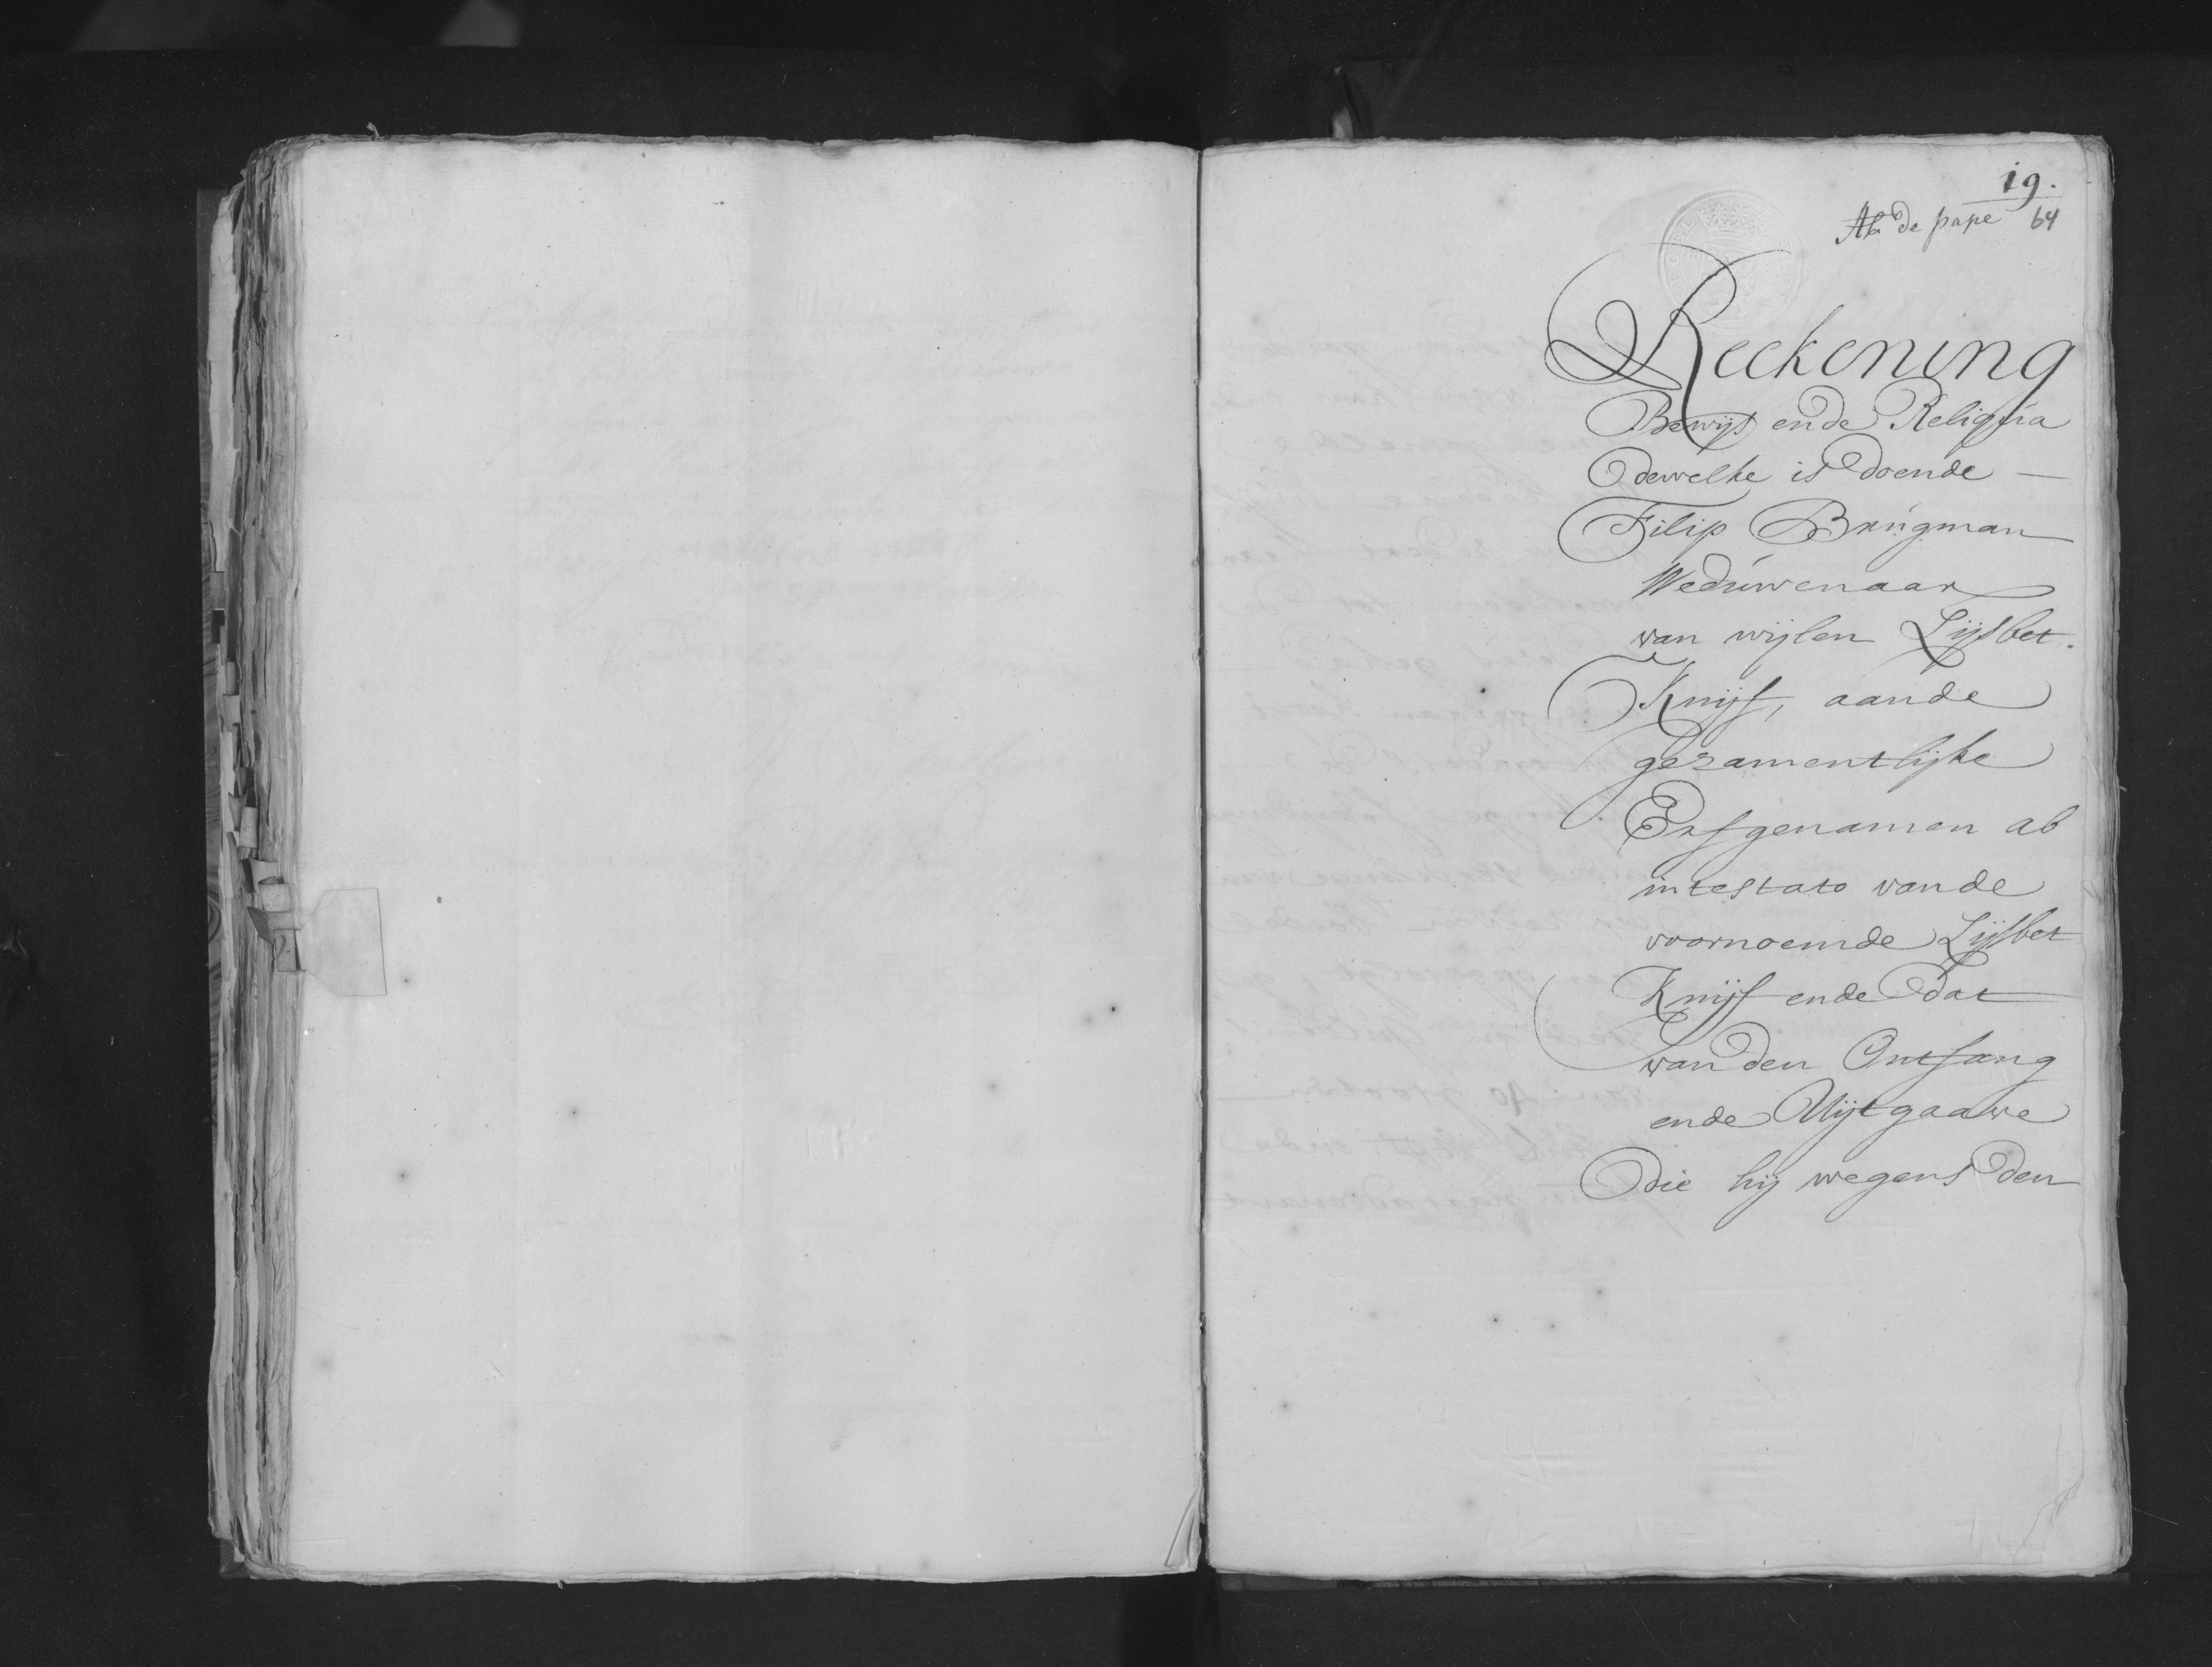 19.
Ab de pape 64
Reckening
Bewijs ende Reliqua
dewelke is doende —
Filip Brugman
Weduwenaar
van wijlen Lijsbet.
Knijf, aande
gezamentlijke
Erfgenamen ab
intestato vande
voornoemde Lijsbet
Knijf ende dat
van den Ontfang
ende Uijtgaave
die hij wegens den